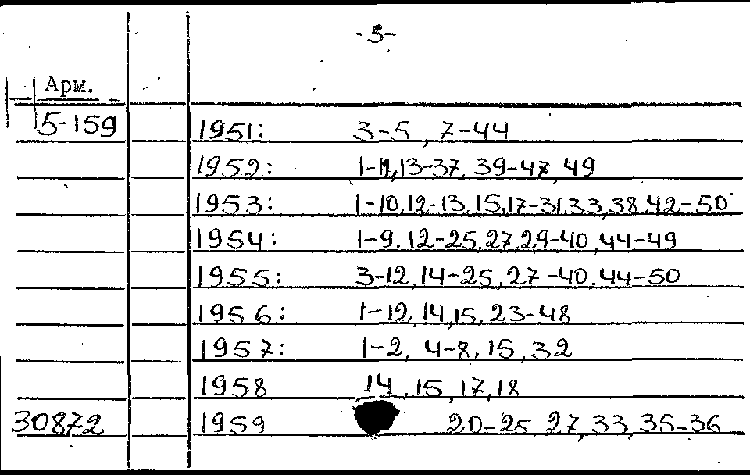 -5-
Арм.
5-159 1951: 3-5, 7-44
1952: 1-11,13-37, 39-47, 49
1953: 1-10,12-13,15,17-31,33,38,42-50
1954: 1-9,12-25,27,29-40,44-49
1955: 3-12,14-25,27-40,44-50
1956: 1-12,14,15,23-48
1957: 1-2, 4-8, 15, 32
1958 14,15,17,18
30872 1959 20-25, 27, 33, 35-36